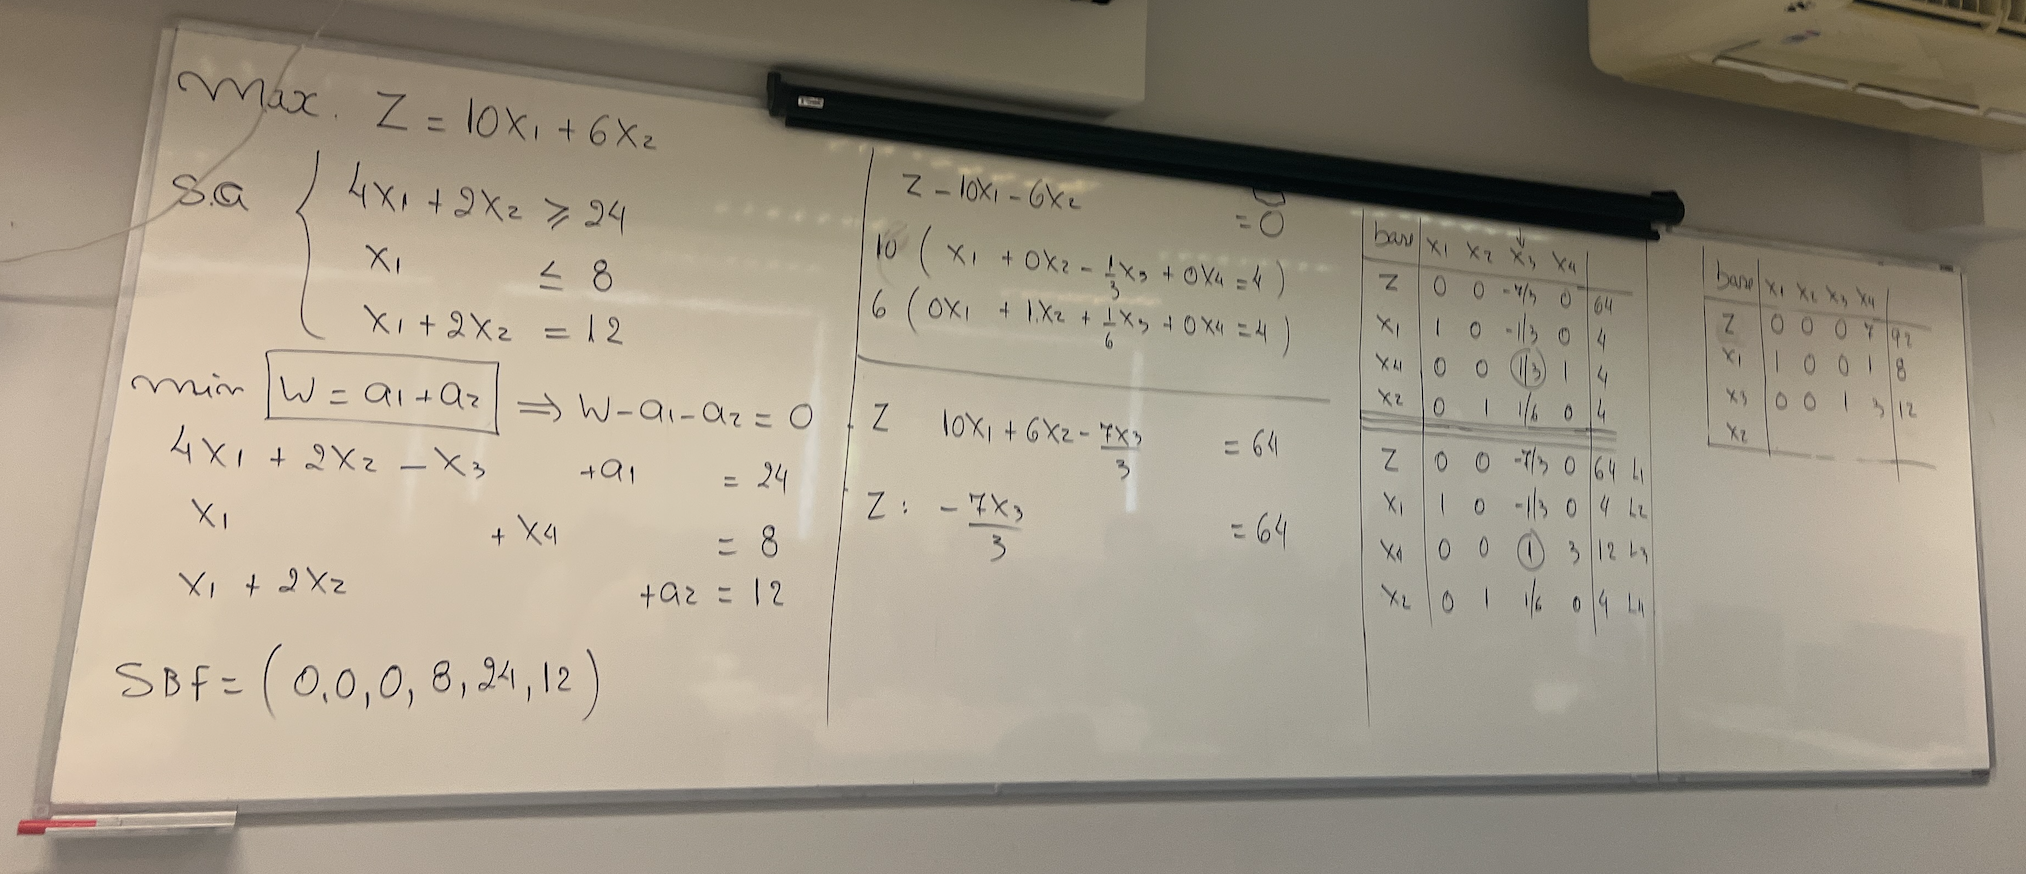 Max. Z = 10x₁ + 6x₂
S.a
4x₁ + 2x₂ ≥ 24
x₁ ≤ 8
x₁ + 2x₂ = 12
min W = a₁ + a₂ ⇒ W - a₁ - a₂ = 0
4x₁ + 2x₂ - x₃ + a₁ = 24
x₁ + x₄ = 8
x₁ + 2x₂ + a₂ = 12
SBF = (0, 0, 0, 8, 24, 12)
Z - 10x₁ - 6x₂ = 0
10 ( x₁ + 0x₂ - 1/3 x₃ + 0x₄ = 4 )
6 ( 0x₁ + 1.x₂ + 1/6 x₃ + 0x₄ = 4 )
Z 10x₁ + 6x₂ - 7x₃/3 = 64
Z : - 7x₃/3 = 64
base x₁ x₂ x₃ x₄
Z 0 0 -7/3 0 64
x₁ 1 0 -1/3 0 4
x₄ 0 0 1/3 1 4
x₂ 0 1 1/6 0 4
Z 0 0 -7/3 0 64 L1
x₁ 1 0 -1/3 0 4 L2
x₄ 0 0 1 3 12 L3
x₂ 0 1 1/6 0 4 L4
base x₁ x₂ x₃ x₄
Z 0 0 0 7 92
x₁ 1 0 0 1 8
x₃ 0 0 1 3 12
x₂